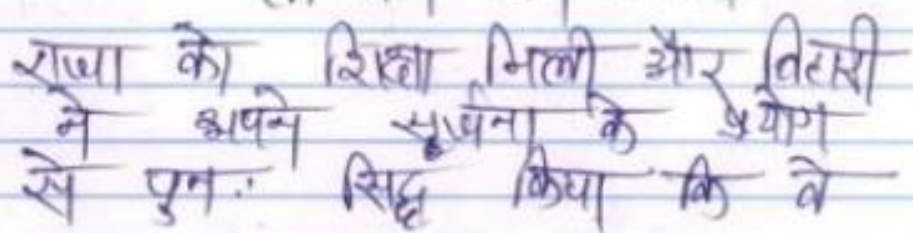 राजा को शिक्षा मिली और बिहारी
ने अपने के प्रयोग
से पुन: सिद्ध किया कि वे